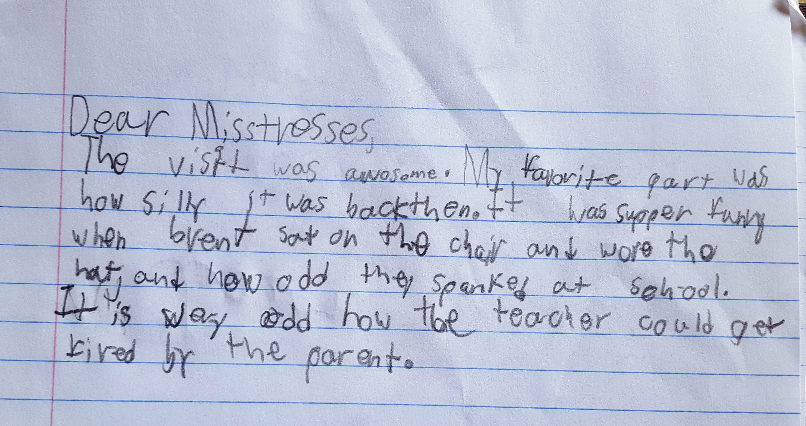 Dear Misstresses,
The visit was awosome. My favorite part was
how silly it was backthen. It was supper funny
when brent sat on the chair and wore the
hat, and how odd they spanked at school.
It is wey odd how the teacher could get
fired by the parent.